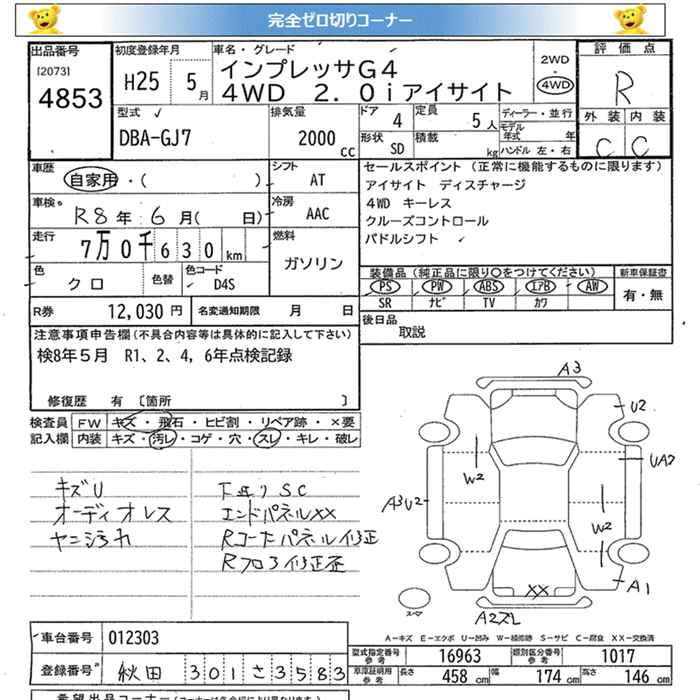 完全ゼロ切りコーナー
出品番号
[2073]
4853
初度登録年月
H25 5月
車名・グレード
インプレッサG4
4WD 2.0iアイサイト
2WD
4WD
評価点
R
外装 内装
C C
型式
DBA-GJ7
排気量
2000 cc
ドア
4
定員
5人
形状
SD
積載
kg
ディーラー・並行
モデル年式 年
ハンドル 左・右
車歴
自家用・( )
シフト
AT
車検
R8年6月( 日)
冷房
AAC
走行
7万0千630km
燃料
ガソリン
色
クロ
色替
色コード
D4S
R券
12,030円
名変通知期限 月 日
セールスポイント (正常に機能するものに限ります)
アイサイト ディスチャージ
4WD キーレス
クルーズコントロール
パドルシフト
装備品(純正品に限り〇をつけてください)
PS PW ABS エアB AW
SR ナビ TV カワ
新車保証書
有・無
後日品
取説
注意事項申告欄(不具合内容等は具体的に記入して下さい)
検8年5月 R1、2、4、6年点検記録
修復歴 有 〔箇所 〕
検査員記入欄
FW キズ・飛石・ヒビ割・リペア跡・×要
内装 キズ・汚レ・コゲ・穴・スレ・キレ・破レ
キズU
オーディオレス
ヤニ汚れ
下廻りSC
エンドパネルXX
Rコーナーパネル修正
Rフロア修正歪
A3
U2
UA2
W2
A3U2
W2
XX
A1
A2スレ
スペア
A-キズ E-エクボ U-凹み W-補修跡 S-サビ C-腐食 XX-交換済
車台番号
012303
登録番号
秋田 301 さ 3583
型式指定番号 参考
16963
類別区分番号 参考
1017
車庫証明用 参考
長さ 458cm
幅 174cm
高さ 146cm
希望出品コーナー